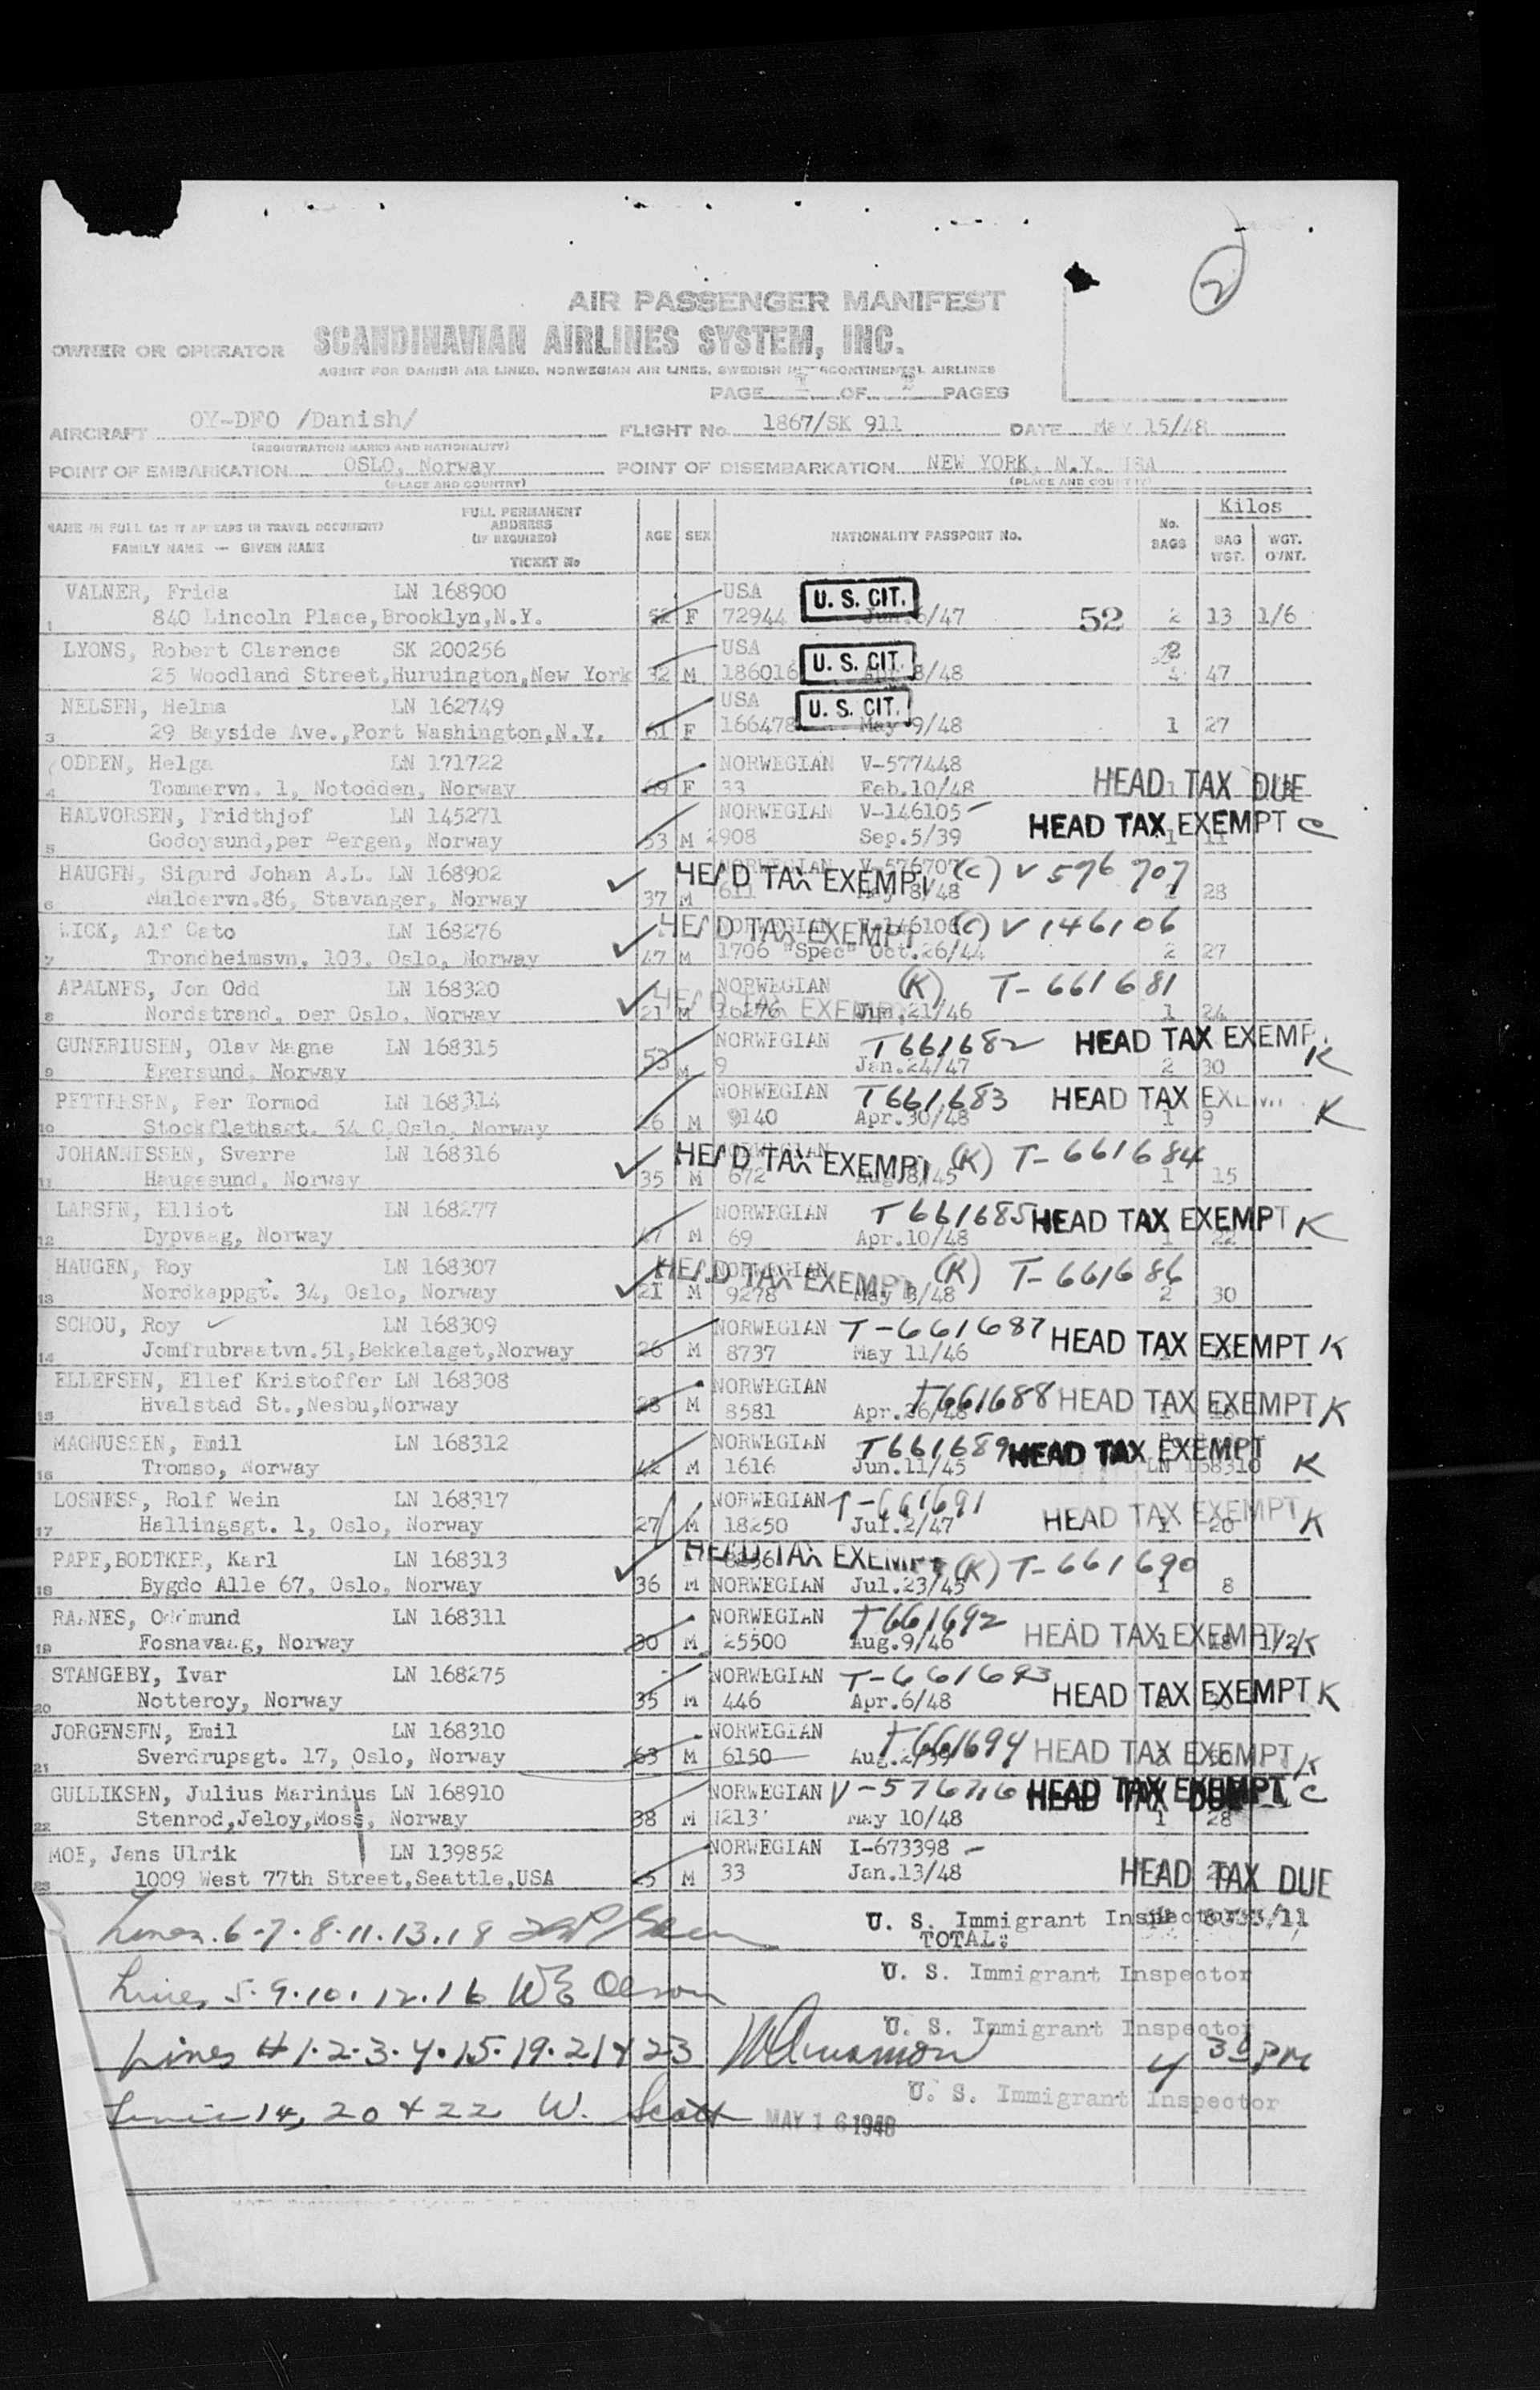 2
AIR PASSENGER MANIFEST
OWNER OR OPERATOR SCANDINAVIAN AIRLINES SYSTEM, INC.
AGENT FOR DANISH AIR LINES, NORWEGIAN AIR LINES, SWEDISH INTERCONTINENTAL AIRLINES
PAGE OF PAGES
AIRCRAFT OY-DFO /Danish/ FLIGHT No. 1867/SK 911 DATE May 15/48
(REGISTRATION MARKS AND NATIONALITY)
POINT OF EMBARKATION OSLO, Norway POINT OF DISEMBARKATION NEW YORK, N.Y. USA
(PLACE AND COUNTRY) (PLACE AND COUNTRY)
NAME IN FULL (AS IT APPEARS IN TRAVEL DOCUMENT) FULL PERMANENT ADDRESS (IF REQUIRED) AGE SEX NATIONALITY PASSPORT No. No. BAGS Kilos
FAMILY NAME — GIVEN NAME TICKET No BAG WGT. WGT. OVNT.
VALNER, Frida LN 168900 USA U. S. CIT.
1 840 Lincoln Place, Brooklyn, N.Y. F 72944 /47 52 2 13 1/6
LYONS, Robert Clarence SK 200256 USA U. S. CIT. 2
25 Woodland Street, Huruington, New York 32 M 186016 8/48 4 47
NELSEN, Helma LN 162749 USA U. S. CIT.
3 29 Bayside Ave., Port Washington, N.Y. 61 F 166478 May 9/48 1 27
ODDEN, Helga LN 171722 NORWEGIAN V-577448
4 Tommervn. 1, Notodden, Norway 69 F 33 Feb.10/48 HEAD TAX DUE
HALVORSEN, Fridthjof LN 145271 NORWEGIAN V-146105 –
5 Godoysund, per Bergen, Norway 53 M 2908 Sep.5/39 HEAD TAX EXEMPT C 1 11
HAUGEN, Sigurd Johan A.L. LN 168902 NORWEGIAN V-576707 HEAD TAX EXEMPT (C) V 576707
6 Maldervn.86, Stavanger, Norway 37 M 611 May 8/48 28
WICK, Alf Cato LN 168276 NORWEGIAN V-146106 HEAD TAX EXEMPT (C) V 146106
7 Trondheimsvn. 103, Oslo, Norway 47 M 1706 "Spec" Oct.26/44 2 27
APALNES, Jon Odd LN 168320 NORWEGIAN (K) T-661681
8 Nordstrand, per Oslo, Norway 21 M 16276 HEAD TAX EXEMPT Jun.21/46 1 24
GUNERIUSEN, Olav Magne LN 168315 NORWEGIAN T661682 HEAD TAX EXEMP K
9 Egersund, Norway 53 M 9 Jan.24/47 2 30
PETTERSEN, Per Tormod LN 168314 NORWEGIAN T661683 HEAD TAX EXEMPT K
10 Stockflethsgt. 54 C, Oslo, Norway 26 M 9140 Apr.30/48 1 9
JOHANNESSEN, Sverre LN 168316 NORWEGIAN HEAD TAX EXEMPT (K) T-661684
11 Haugesund, Norway 35 M 672 Aug.8/45 1 15
LARSEN, Elliot LN 168277 NORWEGIAN T 661685 HEAD TAX EXEMPT K
12 Dypvaag, Norway 47 M 69 Apr.10/48 1 22
HAUGEN, Roy LN 168307 NORWEGIAN HEAD TAX EXEMPT (K) T-661686
13 Nordkappgt. 34, Oslo, Norway 21 M 9278 May 3/48 2 30
SCHOU, Roy LN 168309 NORWEGIAN T-661687 HEAD TAX EXEMPT K
14 Jomfrubraatvn.51, Bekkelaget, Norway 26 M 8737 May 11/46
ELLEFSEN, Ellef Kristoffer LN 168308 NORWEGIAN T661688 HEAD TAX EXEMPT K
15 Hvalstad St., Nesbu, Norway 28 M 8581 Apr.26/48
MAGNUSSEN, Emil LN 168312 NORWEGIAN T661689 HEAD TAX EXEMPT K
16 Tromso, Norway 42 M 1616 Jun.11/45 LN 168310
LOSNESS, Rolf Wein LN 168317 NORWEGIAN T-661691 HEAD TAX EXEMPT K
17 Hallingsgt. 1, Oslo, Norway 27 M 18250 Jul.2/47 1 20
PAPE, BODTKER, Karl LN 168313 HEAD TAX EXEMPT (K) T-661690
18 Bygdo Alle 67, Oslo, Norway 36 M NORWEGIAN Jul.23/45 1 8
RAANES, Oddmund LN 168311 NORWEGIAN T661692
19 Fosnavaag, Norway 30 M 25500 Aug.9/46 HEAD TAX EXEMPT 1 18 1/2 K
STANGEBY, Ivar LN 168275 NORWEGIAN T-661693
20 Notteroy, Norway 35 M 446 Apr.6/48 HEAD TAX EXEMPT K
JORGENSEN, Emil LN 168310 NORWEGIAN T661694
21 Sverdrupsgt. 17, Oslo, Norway 63 M 6150 Aug.2/39 HEAD TAX EXEMPT K
GULLIKSEN, Julius Marinius LN 168910 NORWEGIAN V-576716 HEAD TAX EXEMPT C HEAD TAX DUE
22 Stenrod, Jeloy, Moss, Norway 38 M 1213 May 10/48 1 28
MOE, Jens Ulrik LN 139852 NORWEGIAN I-673398 –
23 1009 West 77th Street, Seattle, USA 25 M 33 Jan.13/48 HEAD TAX DUE
Lines. 6-7-8-11.13.18 U. S. Immigrant Inspector
TOTAL:
Lines 5-9-10.12.16 W E Olson U. S. Immigrant Inspector
Lines # 1-2-3-4-15-19-21 & 23 U. S. Immigrant Inspector 4 30 PM
Lines 14, 20 & 22 W. Scott U. S. Immigrant Inspector
MAY 16 1948